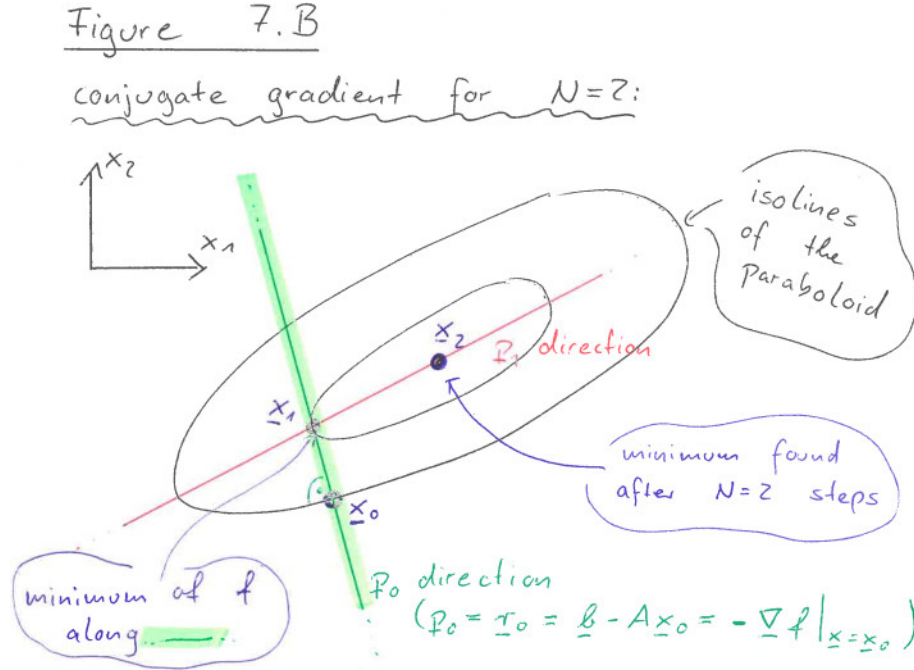 Figure 7.B
conjugate gradient for N=2:
x₂
x₁
isolines
of the
paraboloid
x̲₂
p̲₁ direction
x̲₁
minimum found
after N=2 steps
x̲₀
minimum of f
along
p̲₀ direction
(p̲₀ = r̲₀ = b̲ - A x̲₀ = - ∇̲ f |x̲=x̲₀)